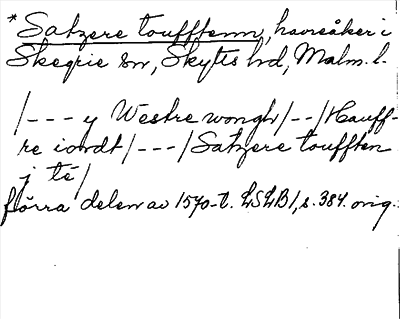 *Satzere toufftenn, havreåker i
Skegrie sn, Skytts hd, Malm. l.
/--- y Westre wongh/--/Hauff-
re iordt/---/Satzere toufften
j té/
förra delen av 1570-t. LSLB1, s. 384. orig.